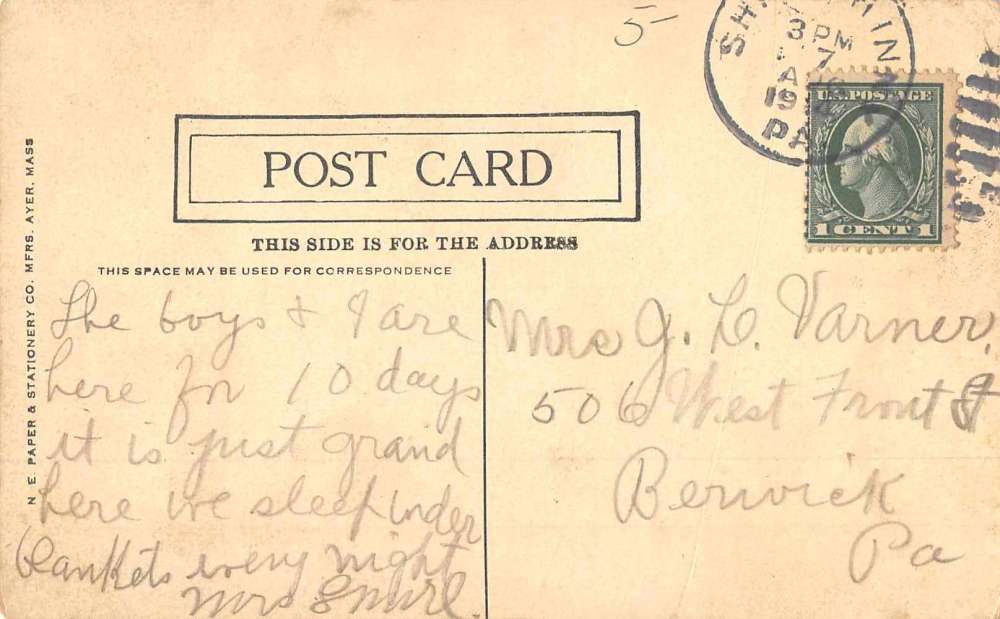 5-
3 PM
7
19
PA
U.S. POSTAGE
1 CENT 1
POST CARD
THIS SIDE IS FOR THE ADDRESS
THIS SPACE MAY BE USED FOR CORRESPONDENCE
N E. PAPER & STATIONERY CO. MFRS. AYER, MASS
The boys & I are
here for 10 days
it is just grand
here we sleep under
blankets every night
Mrs
Mrs J. L. Varner.
506 West Front St
Berwick
Pa